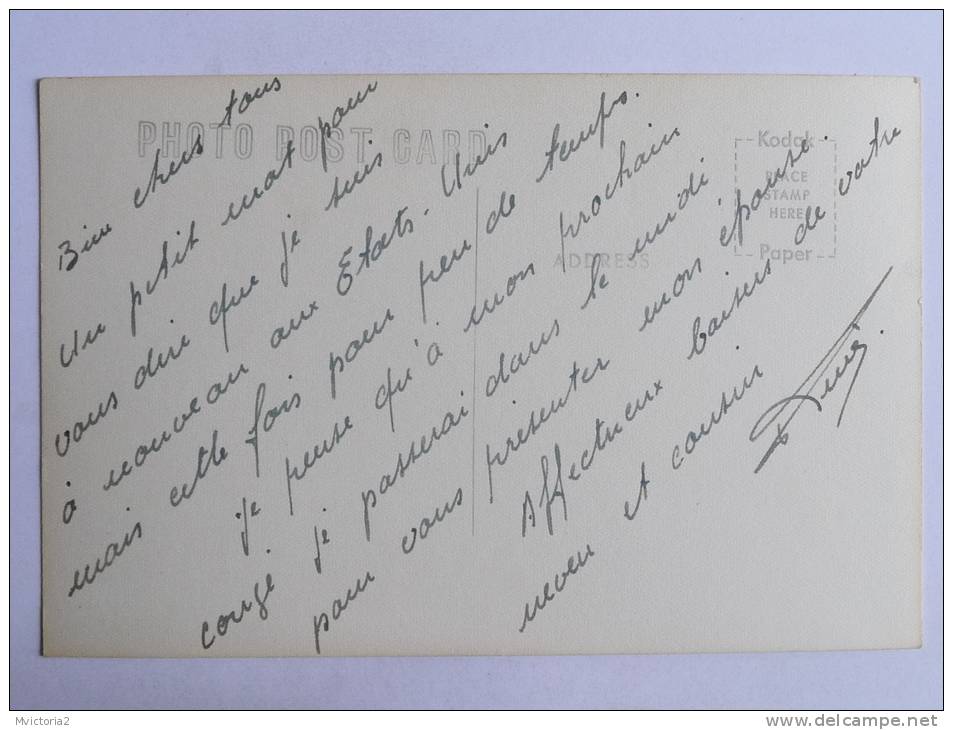 Bien chers tous
Un petit mot pour
vous dire que je suis
à nouveau aux Etats-Unis
mais cette fois pour peu de temps.
Je pense qu'à mon prochain
congé je passerai dans le midi
pour vous présenter mon épouse.
Affectueux baisers de votre
neveu et cousin
PHOTO POST CARD
ADDRESS
Kodak
PLACE
STAMP
HERE
Paper
Mvictoria2
www.delcampe.net